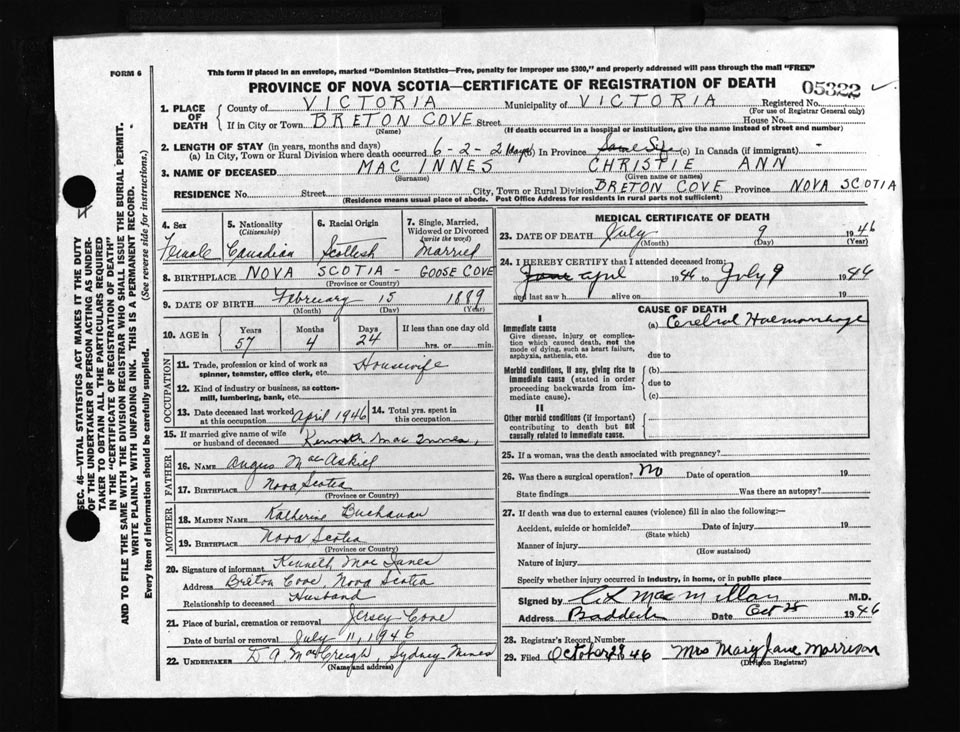 FORM 6
This form if placed in an envelope, marked "Dominion Statistics—Free, penalty for improper use $300," and properly addressed will pass through the mail "FREE"
PROVINCE OF NOVA SCOTIA—CERTIFICATE OF REGISTRATION OF DEATH
05322
1. PLACE OF DEATH
County of VICTORIA Municipality of VICTORIA Registered No.
(For use of Registrar General only)
If in City or Town BRETON COVE Street House No.
(Name) (If death occurred in a hospital or institution, give the name instead of street and number)
2. LENGTH OF STAY (in years, months and days)
(a) In City, Town or Rural Division where death occurred 6-2-2 (b) In Province (c) In Canada (if immigrant)
3. NAME OF DECEASED MAC INNES CHRISTIE ANN
(Surname) (Given name or names)
RESIDENCE No. Street City, Town or Rural Division BRETON COVE Province NOVA SCOTIA
(Residence means usual place of abode. Post Office Address for residents in rural parts not sufficient)
4. Sex Female
5. Nationality (Citizenship) Canadian
6. Racial Origin Scottish
7. Single, Married, Widowed or Divorced (write the word) Married
8. BIRTHPLACE NOVA SCOTIA - GOOSE COVE
(Province or Country)
9. DATE OF BIRTH February 15 1889
(Month) (Day) (Year)
10. AGE in Years Months Days If less than one day old
57 4 24 hrs. or min.
OCCUPATION
11. Trade, profession or kind of work as spinner, teamster, office clerk, etc. Housewife
12. Kind of industry or business, as cotton-mill, lumbering, bank, etc.
13. Date deceased last worked at this occupation April 1946 14. Total yrs. spent in this occupation
15. If married give name of wife or husband of deceased Kenneth Mac Innes,
FATHER
16. NAME Angus MacAskill
17. BIRTHPLACE Nova Scotia
(Province or Country)
MOTHER
18. MAIDEN NAME Katherine Buchanan
19. BIRTHPLACE Nova Scotia
(Province or Country)
20. Signature of informant Kenneth Mac Innes
Address Breton Cove, Nova Scotia
Relationship to deceased Husband
21. Place of burial, cremation or removal Jersey Cove
Date of burial or removal July 11, 1946
22. UNDERTAKER Sydney Mines
(Name and address)
MEDICAL CERTIFICATE OF DEATH
23. DATE OF DEATH July 9 1946
(Month) (Day) (Year)
24. I HEREBY CERTIFY that I attended deceased from:
June April 1946 to July 9 1946
and last saw h alive on 19
CAUSE OF DEATH
I
Immediate cause (a) Cerebral Haemorrhage
Give disease, injury or complication which caused death, not the mode of dying, such as heart failure, asphyxia, asthenia, etc.
due to
Morbid conditions, if any, giving rise to immediate cause (stated in order proceeding backwards from immediate cause).
(b)
due to
(c)
II
Other morbid conditions (if important) contributing to death but not causally related to immediate cause.
25. If a woman, was the death associated with pregnancy?
26. Was there a surgical operation? No Date of operation 19
State findings Was there an autopsy?
27. If death was due to external causes (violence) fill in also the following:—
Accident, suicide or homicide? Date of injury 19
(State which)
Manner of injury
(How sustained)
Nature of injury
Specify whether injury occurred in industry, in home, or in public place
Signed by MacMillan M.D.
Address Baddeck Date Oct 25 1946
28. Registrar's Record Number
29. Filed October 28 46 Mrs Mary Jane Morrison
(Division Registrar)
SEC. 46—VITAL STATISTICS ACT MAKES IT THE DUTY
OF THE UNDERTAKER OR PERSON ACTING AS UNDER-
TAKER TO OBTAIN ALL THE PARTICULARS REQUIRED
IN THE "CERTIFICATE OF REGISTRATION OF DEATH"
AND TO FILE THE SAME WITH THE DIVISION REGISTRAR WHO SHALL ISSUE THE BURIAL PERMIT.
WRITE PLAINLY WITH UNFADING INK. THIS IS A PERMANENT RECORD.
Every item of information should be carefully supplied. (See reverse side for instructions.)